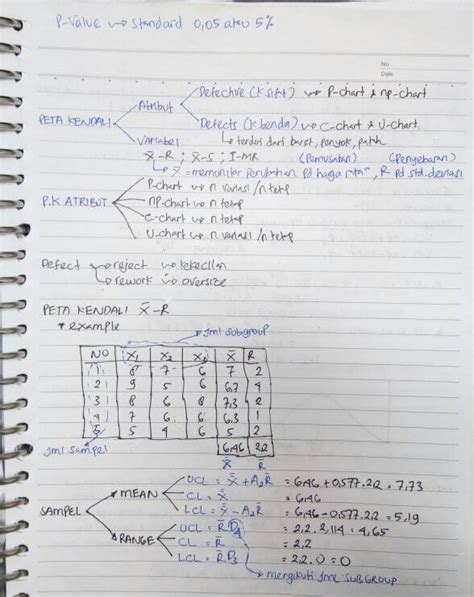 P-Value → standard 0,05 atau 5%
No
Date
PETA KENDALI
Atribut
Defective (k. sifat) → P-chart & np-chart
Defects (k. benda) → C-chart & U-chart
↳ terdiri dari baret, penyok, patah
Variabel
X̄-R ; X̄-S ; I-MR (Pemusatan) (Penyebaran)
↳ X̄ = memonitor Perubahan Pd harga rata², R pd std. deviasi
P.K ATRIBUT
P-chart → n variasi / n tetap
nP-chart → n tetap
C-chart → n tetap
U-chart → n variasi / n tetap
Defect → reject → kekecilan
→ rework → oversize
PETA KENDALI X̄-R
* example
→ jml subgroup
NO X₁ X₂ X₃ X̄ R
1 8 7 6 7 2
2 9 5 6 6,7 4
3 8 6 8 7,3 2
4 7 6 6 6,3 1
5 5 4 6 5 2
jml sampel
6,46 2,2
X̿ R̄
SAMPEL
MEAN
UCL = X̿ + A₂R̄ = 6,46 + 0,577. 2,2 = 7,73
CL = X̿ = 6,46
LCL = X̿ - A₂R̄ = 6,46 - 0,577. 2,2 = 5,19
RANGE
UCL = R̄ D₄ = 2,2. 2,114 = 4,65
CL = R̄ = 2,2
LCL = R̄ D₃ = 2,2. 0 = 0
→ mengikuti JML SUBGROUP